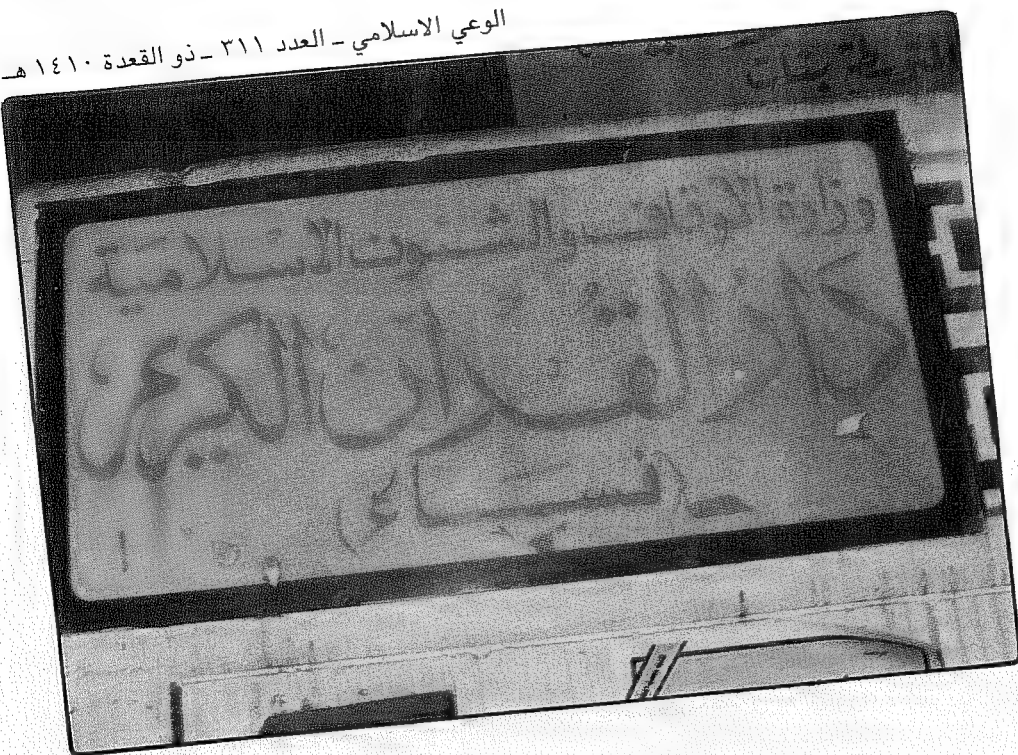 الوعي الاسلامي ـ العدد ٣١١ ـ ذو القعدة ١٤١٠ هـ
بنات
وزارة الأوقاف والشئون الاسلامية
دار القرآن الكريم
نساء